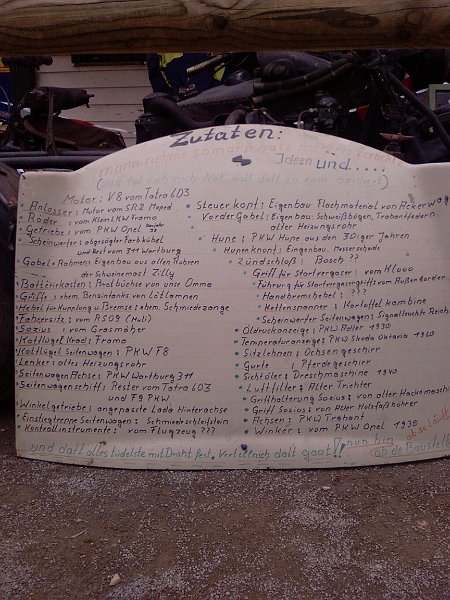 Zutaten:
Ideen und.....
Motor: V8 vom Tatra 603
Anlasser: Motor vom SR2 Moped
Räder: vom Kleinl KW Framo
Getriebe: vom PKW Opel
Scheinwerfer: abgesägter Farbkübel
und Rest vom 311 Wartburg
Gabel + Rahmen: Eigenbau aus alten Rohren
der Schweinemast Zilly
Batteriekasten: Brotbüchse von unse Omma
Griffe: ehem. Benzintanks von Lötlampen
Hebel für Kupplung u Bremse: ehem. Schmiedezange
Fahrersitz: vom RS08 (Holi)
Sozius: vom Grasmäher
Kotflügel Krad: Framo
Kotflügel Seitenwagen: PKW F8
Lenker: altes Heizungsrohr
Seitenwagen Achse: PKW Wartburg 311
Seitenwagenschiff: Rester vom Tatra 603
und F9 PKW
Winkelgetriebe: angepasste Lada Hinterachse
Einstiegtreppe Seitenwagen: Schmiedeschleifstein
Kontrollinstrumente: vom Flugzeug ???
Steuerkopf: Eigenbau Flachmaterial von Ackerwag
Vordergabel: Eigenbau: Schweißbögen, Trabantfedern
alter Heizungsrohr
Hupe: PKW Hupe aus den 30iger Jahren
Hupenknopf: Eingenbau, Messerscheide
Zündschloß: Bosch ??
Griff für Startvergaser: vom Klooo
Führung für Startvergasergriff: vom Außenborder
Handbremshebel: ???
Kettenspanner: Kartoffel kombine
Scheinwerfer Seitenwagen: Signalleuchte Reich
Öldruckanzeige: PKW Adler 1930
Temperaturanzeige: PKW Skoda Oktavia 1960
Sitzlehnen: Ochsengeschirr
Gurte: Pferdegeschirr
Sichtöler: Dreschmaschine 1940
Luftfilter: Alter Trichter
Griffhalterung Sozius: von alter Hackemasch
Griff Sozius: von alter Holzfaßbohrer
Achsen: PKW Trabant
Winker: vom PKW Opel 1930
und datt alles tüdelste mit Droht fest, Verlett nich datt goat!! nun hin
ob de Baustell